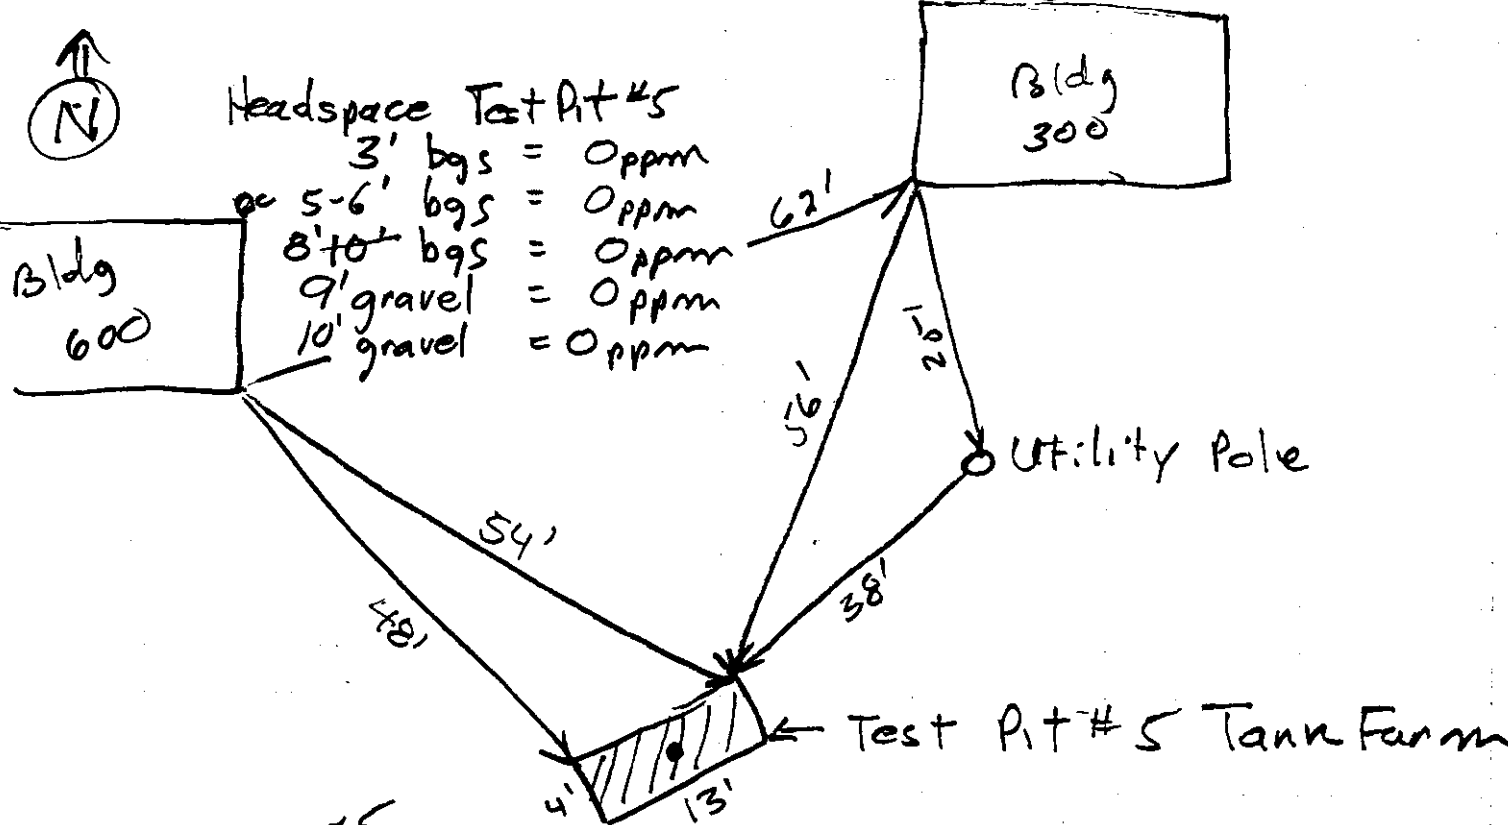 N
Headspace Test Pit #5
3' bgs = 0ppm
5-6' bgs = 0ppm
8' bgs = 0ppm
9' gravel = 0ppm
10' gravel = 0ppm
Bldg
300
Bldg
600
62'
Utility Pole
54'
48'
38'
Test Pit #5 Tank Farm
4'
13'